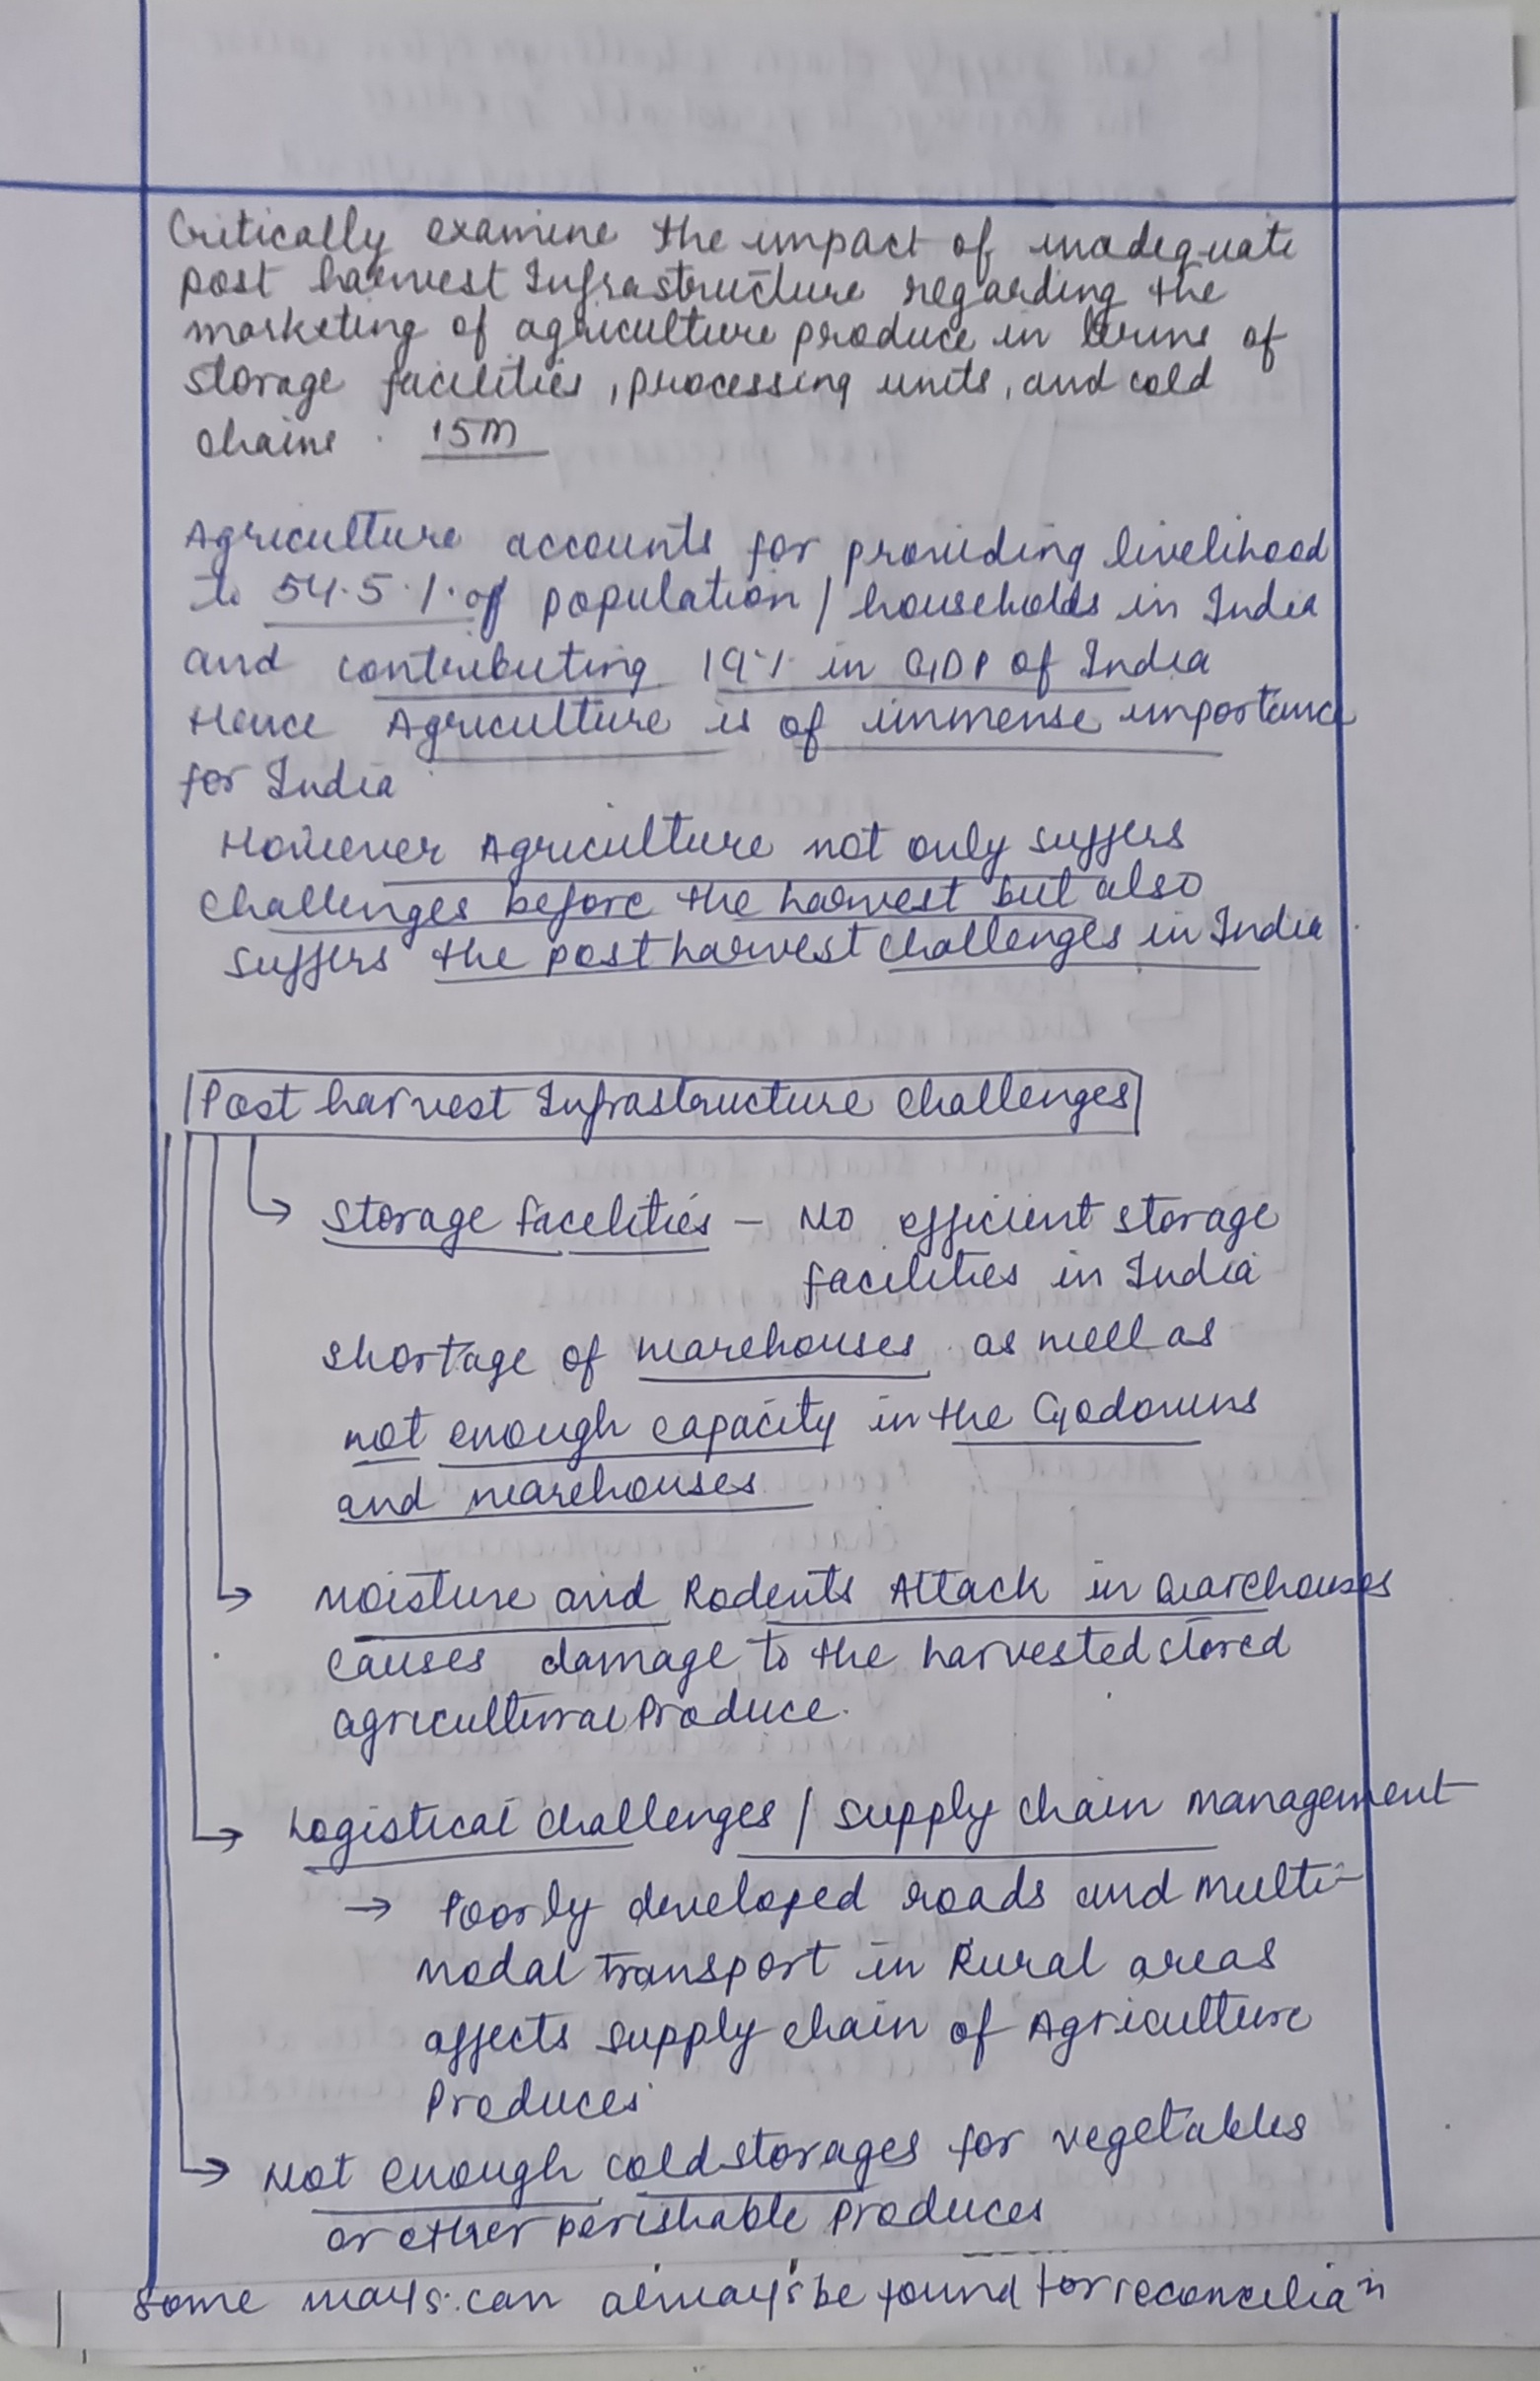 Critically examine the impact of inadequate
post harvest Infrastructure regarding the
marketing of agriculture produce in terms of
storage facilities, processing units, and cold
chains. 15M
Agriculture accounts for providing livelihood
to 54.5% of population / households in India
and contributing 19% in GDP of India
Hence Agriculture is of immense importance
for India
However Agriculture not only suffers
challenges before the harvest but also
suffers the post harvest challenges in India
Post harvest Infrastructure challenges
→ Storage facilities - No efficient storage
facilities in India
shortage of warehouses as well as
not enough capacity in the Godowns
and warehouses
→ Moisture and Rodents Attack in warehouses
causes damage to the harvested stored
agricultural Produce.
→ Logistical challenges / supply chain management
→ Poorly developed roads and multi-
modal transport in Rural areas
affects supply chain of Agriculture
Produces
→ Not enough cold storages for vegetables
or other perishable produces
Some ways can always be found for